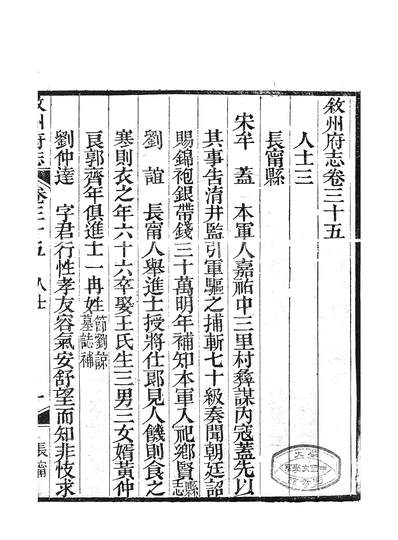 敘州府志卷三十五
人士三
長甯縣
宋牟 蓋 本軍人嘉祐中三里村彝謀内寇蓋先以
其事告淯井監引軍驅之捕斬七十級奏聞朝廷詔
賜錦袍銀帶錢三十萬明年補知本軍入祀鄉賢縣志
劉 誼 長甯人舉進士授將仕郎見人饑則食之
寒則衣之年六十六卒娶王氏生三男三女婿黃仲
良郭齊年俱進士一冉姓節劉諒墓誌補
劉仲達 字君行性孝友容氣安舒望而知非忮求
敘州府志 卷三十五 人士 一 長甯